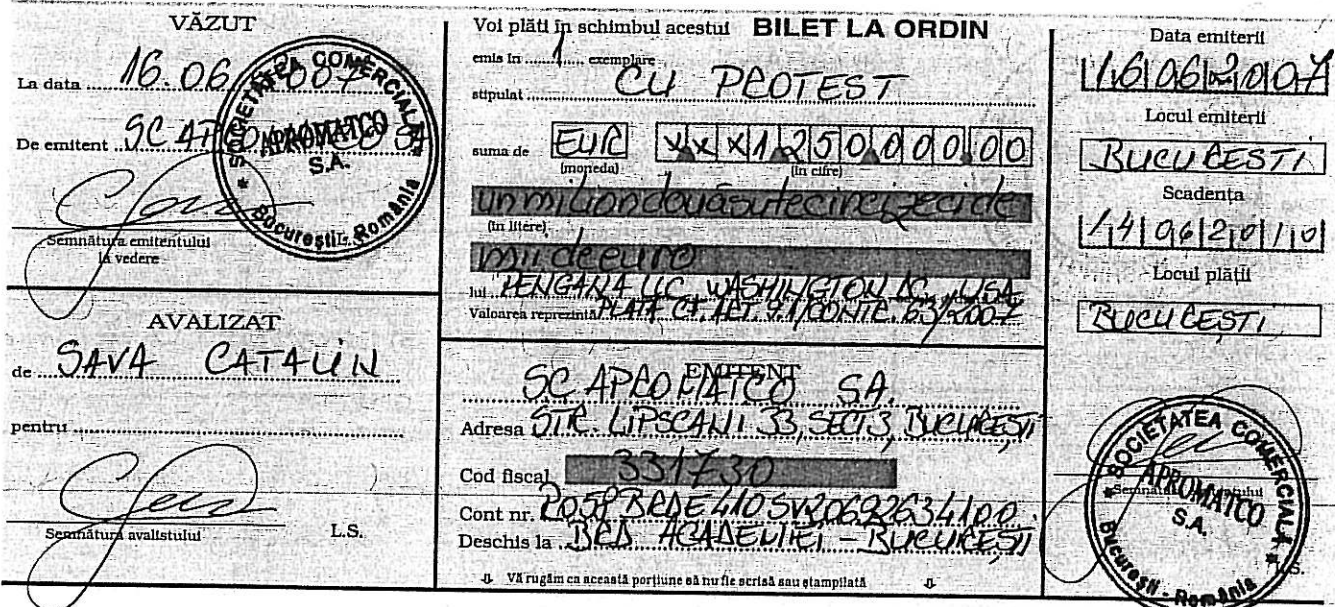 VĂZUT
La data 16.06.2007
De emitent SC APROMATCO
SOCIETATEA COMERCIALĂ
APROMATCO
S.A.
București - România
Semnătura emitentului
la vedere
AVALIZAT
de SAVA CATALIN
pentru
Semnătura avalistului L.S.
Voi plăti în schimbul acestui BILET LA ORDIN
emis în 1 exemplare
stipulat CU PROTEST
suma de EUR XXX1250000.00
(moneda) (în cifre)
un milion două sute cinci zeci de
(în litere)
mii de euro
lui PENGANA LLC WASHINGTON DC, USA
Valoarea reprezintă PLATA CT. ART. 9.1/CONTR. 63/2007
EMITENT
SC APROMATCO SA.
Adresa STR. LIPSCANI 33, SECT 3, BUCUREȘTI
Cod fiscal 331730
Cont nr.
Deschis la BRD ACADEMIEI - BUCUREȘTI
Vă rugăm ca această porțiune să nu fie scrisă sau ștampilată
Data emiterii
16062007
Locul emiterii
BUCUREȘTI
Scadența
14062010
Locul plății
BUCUREȘTI
SOCIETATEA COMERCIALĂ
APROMATCO
S.A.
București - România
L.S.